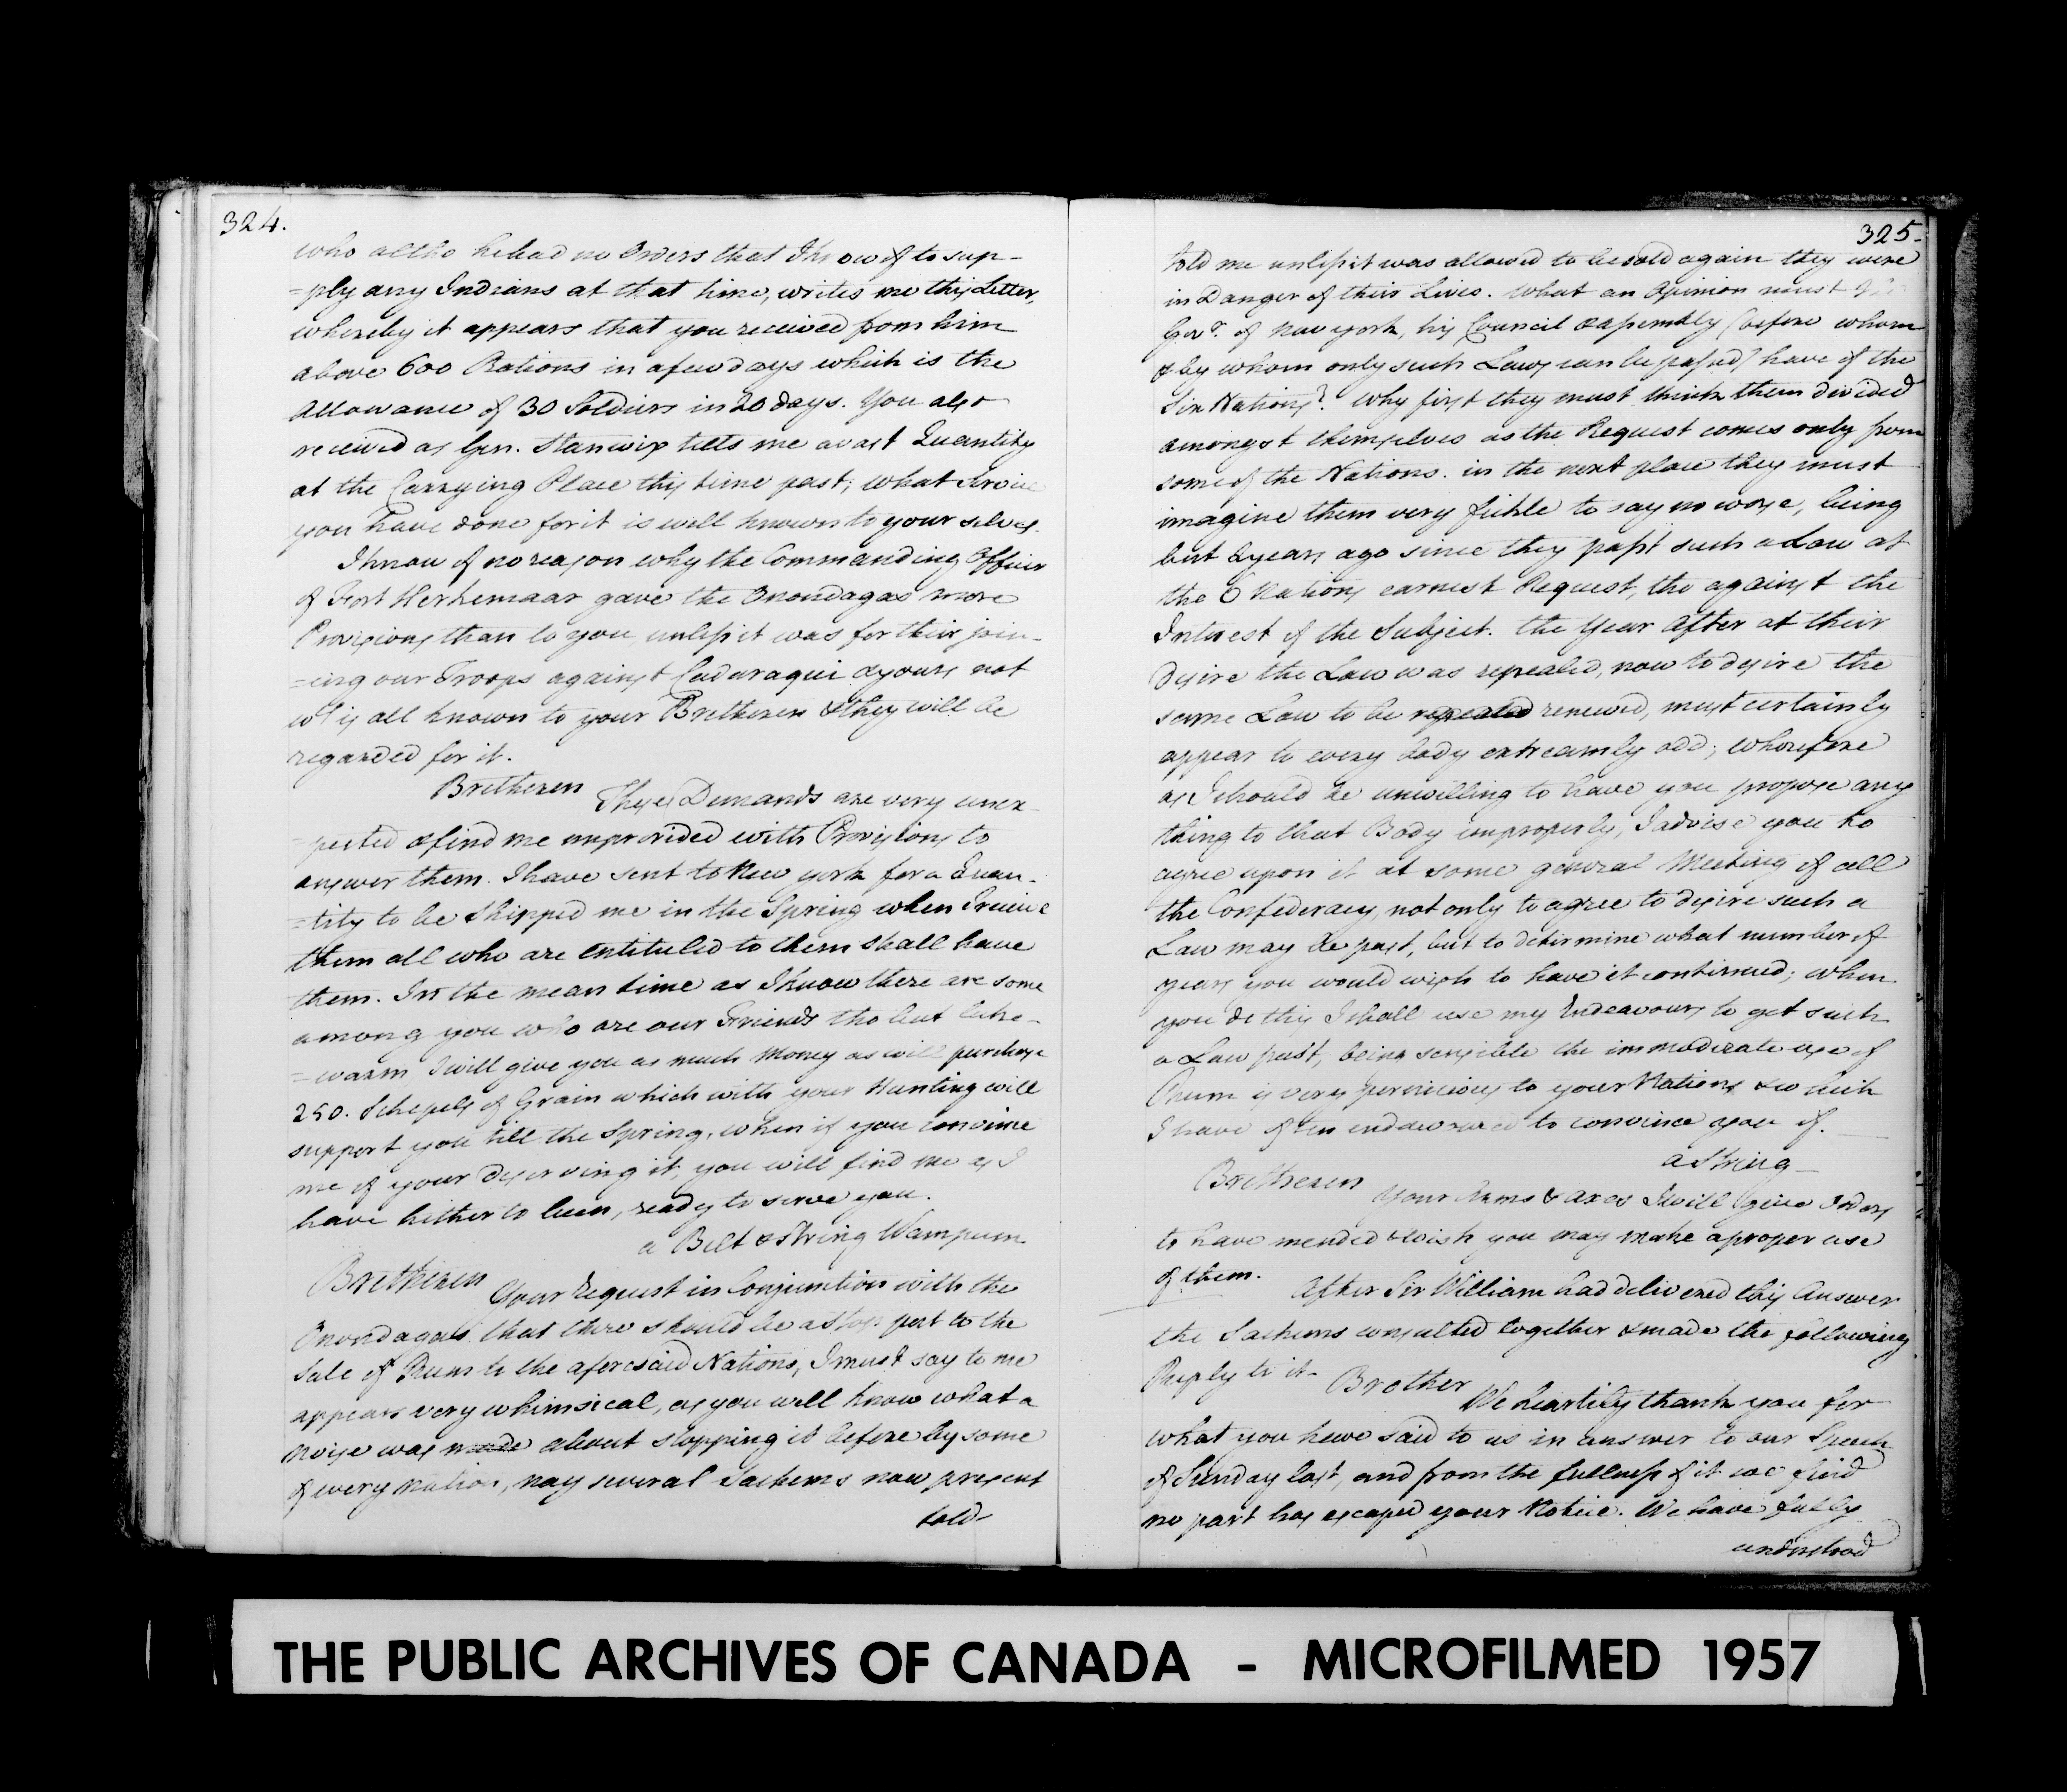 324.
who altho he had no Orders that I know of to sup-
=ply any Indians at that time, writes me this Letter,
whereby it appears that you received from him
above 600 Rations in a few days which is the
Allowance of 30 Soldiers in 20 days. You also
received as Gen. Stanwix tells me a vast Quantity
at the Carrying Place this time past; what Service
you have done for it is well known to your selves.
I know of no reason why the Commanding Officer
of Fort Herkemaar gave the Onondagas more
Provisions than to you unless it was for their join-
=ing our Troops against Cadaraqui & yours not
wh. is all known to your Bretheren & they will be
regarded for it.
Bretheren These Demands are very unex-
=pected & find me unprovided with Provisions to
answer them. I have sent to New York for a Quan-
=tity to be Shipped me in the Spring when I receive
them all who are entituled to them shall have
them. In the mean time as I know there are some
among you who are our Friends tho but luke-
=warm I will give you as much Money as will purchase
250. Schepels of Grain which with your Hunting will
support you till the Spring, when if you convince
me of your deserving it, you will find me as I
have hitherto been, ready to serve you.
a Belt & String Wampum.
Bretheren Your Request in Conjunction with the
Onondagas that there should be a Stop put to the
Sale of Rum to the aforesaid Nations, I must say to me
appears very whimsical, as you well know what a
noise was made about stopping it before by some
of every nation, nay several Sachems now present
told
325.
told me unless it was allowed to be sold again they were
in Danger of their Lives. What an Opinion must
Govr. of New york, his Council & Assembly (before whom
& by whom only such Laws can be passed) have of the
Six Nations? Why first they must think them divided
amongst themselves as the Request comes only from
some of the Nations. in the next place they must
imagine them very fickle to say no worse, being
but 2 years ago since they past such a Law at
the 6 Nations earnest Request, tho against the
Interest of the Subject. the Year After at their
desire the Law was repealed, now to desire the
same Law to be repealed renewed, must certainly
appear to every body extreamly odd; wherefore
as I should be unwilling to have you propose any
thing to that Body improperly, I advise you to
agree upon it at some general Meeting of all
the Confederacy, not only to agree to desire such a
Law may be past, but to determine what number of
years you would wish to have it continued; when
you do this I shall use my Endeavours to get such
a Law past, being sensible the immoderate use of
Rum is very pernicious to your Nations & which
I have often endeavored to convince you of.
a String
Bretheren Your Arms & Axes I will give Orders
to have mended & wish you may make a proper use
of them.
After Sir William had delivered this Answer
the Sachems consulted together & made the following
Reply to it-
Brother We heartily thank you for
what you have said to us in answer to our Speech
of Sunday last, and from the fullness of it we find
no part has escaped your Notice. We have fully
understood
THE PUBLIC ARCHIVES OF CANADA - MICROFILMED 1957